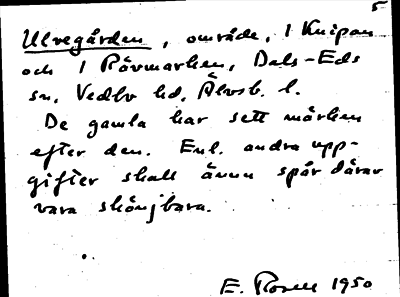 5
Ulvegården, område, i Knipan
och i Rävmarken, Dals-Eds
sn, Vedbo hd, Älvsb. l.
De gamla har sett märken
efter den. Enl. andra upp-
gifter skall ännu spår därav
vara skönjbara.
E. Rosell 1950